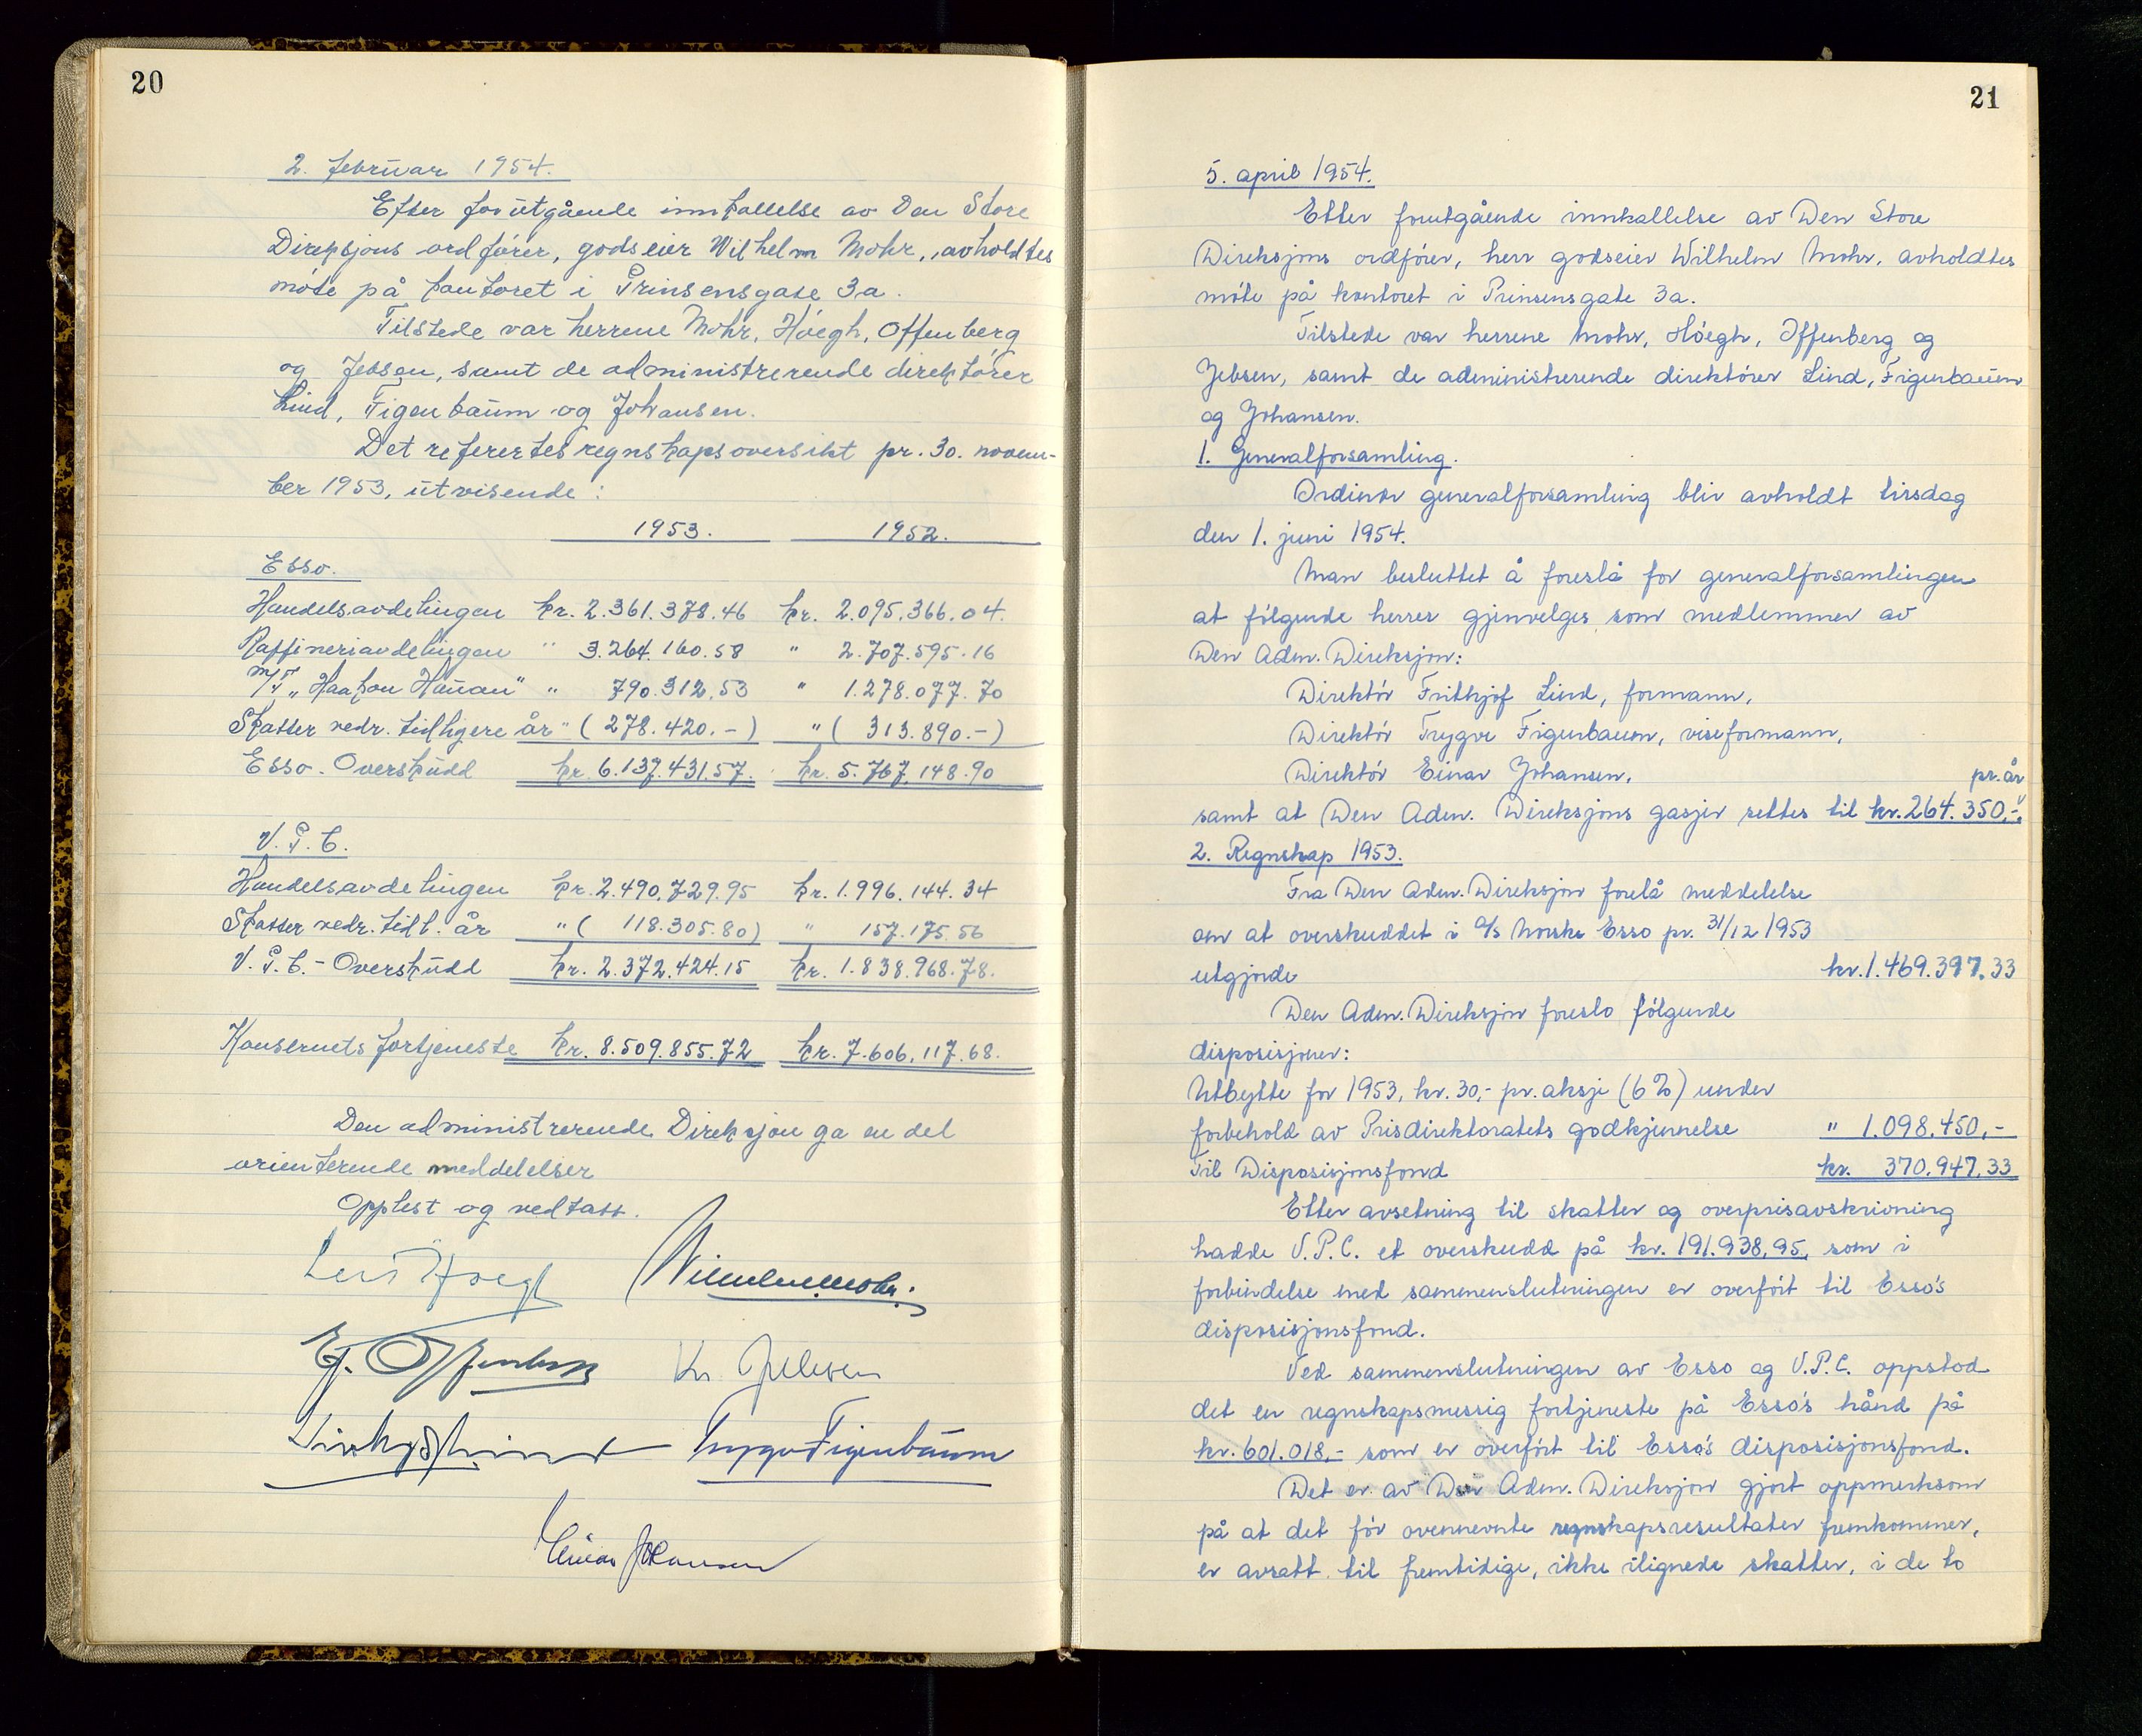 20
2. februar 1954.
Efter forutgående innkallelse av Den Store
Direksjons ordfører, godseier Wilhelm Mohr, avholdtes
møte på kontoret i Prinsensgate 3a.
Tilstede var herrene Mohr, Höegh, Offenberg
og Jebsen, samt de administrerende direktører
Lind, Figenbaum og Johansen.
Det refererteb regnskapsoversikt pr. 30. novem-
ber 1953, utvisende:
1953. 1952.
Esso.
Handelsavdelingen kr. 2.361.378.46 kr. 2.095.366.04.
Raffineriavdelingen " 3.264.160.58 " 2.707.595.16
m/T „Haakon Hauan" " 790.312.53 " 1.278.077.70
Skatter vedr. tidligere år " (278.420.-) " ( 313.890.-)
Esso-Overskudd kr. 6.137.431.57. kr. 5.767.148.90
V.P.C.
Handelsavdelingen kr. 2.490.729.95 kr. 1.996.144.34
Skatter vedr. tidl. år " ( 118.305.80) " 157.175.56
V.P.C.-Overskudd kr. 2.372.424.15 kr. 1.838.968.78.
Konsernets fortjeneste kr. 8.509.855.72 kr. 7.606.117.68.
Den administrerende Direksjon ga en del
orienterende meddelelser
Opplest og vedtatt.
Leif Höegh Wilhelm Mohr.
E. Offenberg Kr. Jebsen
Frithjof Lind Trygve Figenbaum
Einar Johansen
21
5. april 1954.
Etter forutgående innkallelse av Den Store
Direksjons ordfører, herr godseier Wilhelm Mohr, avholdtes
møte på kontoret i Prinsensgate 3a.
Tilstede var herrene Mohr, Höegh, Offenberg og
Jebsen, samt de administrerende direktører Lind, Figenbaum
og Johansen.
1. Generalforsamling.
Ordinær generalforsamling blir avholdt tirsdag
den 1. juni 1954.
Man besluttet å foreslå for generalforsamlingen
at følgende herrer gjenvelges som medlemmer av
Den Adm. Direksjon:
Direktør Frithjof Lind, formann,
Direktør Trygve Figenbaum, viseformann,
Direktør Einar Johansen,
pr. år
samt at Den Adm. Direksjons gasjer settes til kr. 264.350,-.
2. Regnskap 1953.
Fra Den Adm. Direksjon forelå meddelelse
om at overskuddet i A/S Norske Esso pr. 31/12 1953
utgjorde kr. 1.469.397,33
Den Adm. Direksjon foreslo følgende
disposisjoner:
Utbytte for 1953, kr. 30,- pr. aksje (6%) under
forbehold av Prisdirektoratets godkjennelse " 1.098.450,-
Til Disposisjonsfond kr. 370.947,33
Etter avsetning til skatter og overprisavskrivning
hadde V.P.C. et overskudd på kr. 191.938,95, som i
forbindelse med sammenslutningen er overført til Esso's
disposisjonsfond.
Ved sammenslutningen av Esso og V.P.C. oppstod
det en regnskapsmessig fortjeneste på Esso's hånd på
kr. 601.018,- som er overført til Esso's disposisjonsfond.
Det er av Den Adm. Direksjon gjort oppmerksom
på at det før ovennevnte regnskapsresultater fremkommer,
er avsatt til fremtidige, ikke ilignede skatter, i de to